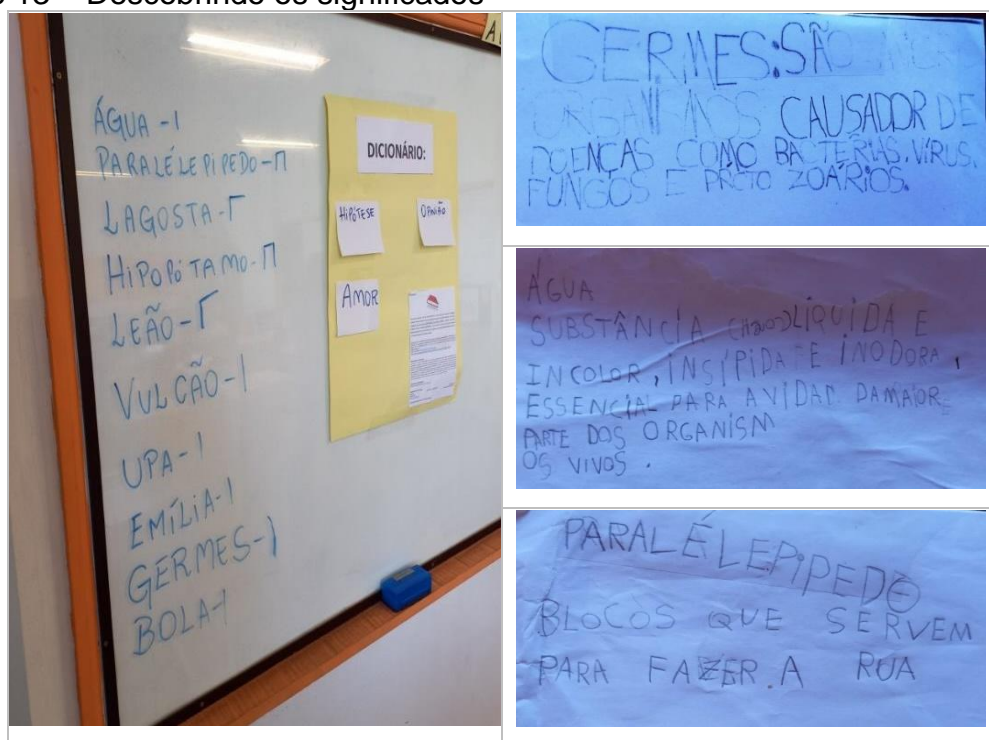 Descobrindo os significados
ÁGUA -
PARALÉLEPIPEDO -
LAGOSTA -
HIPOPÓTAMO -
LEÃO -
VULCÃO -
UPA -
EMÍLIA -
GERMES -
BOLA -
DICIONÁRIO:
HIPÓTESE
OPINIÃO
AMOR
GERMES: SÃO
ORGANISMOS CAUSADOR DE
DOENÇAS COMO BACTÉRIAS, VÍRUS,
FUNGOS E PROTO ZOÁRIOS.
ÁGUA
SUBSTÂNCIA LÍQUIDA E
INCOLOR, INSÍPIDA E INODORA,
ESSENCIAL PARA A VIDA DAMAIOR
PARTE DOS ORGANISM
OS VIVOS.
PARALÉLEPIPEDO
BLOCOS QUE SERVEM
PARA FAZER A RUA